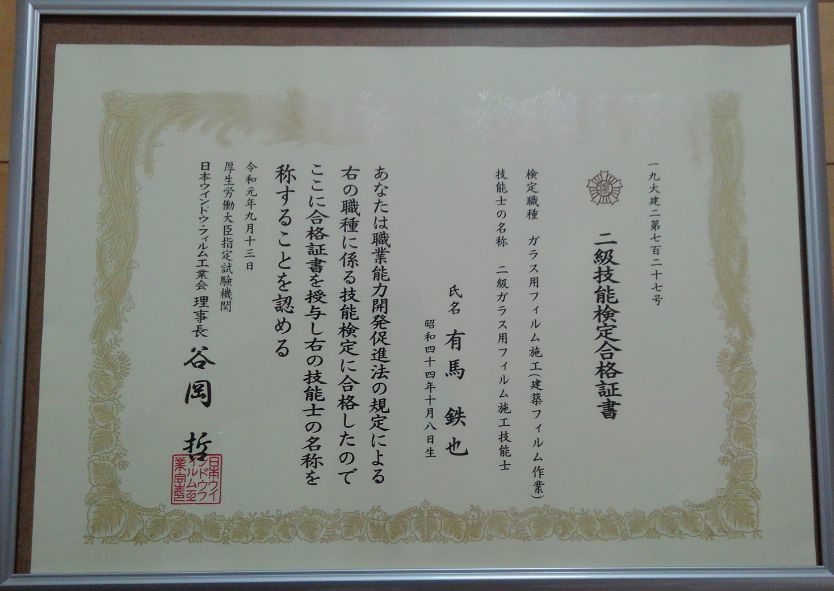 一九大建二第七百二十七号
二級技能検定合格証書
検定職種 ガラス用フィルム施工(建築フィルム作業)
技能士の名称 二級ガラス用フィルム施工技能士
氏名 有馬 鉄也
昭和四十四年十月八日生
あなたは職業能力開発促進法の規定による
右の職種に係る技能検定に合格したので
ここに合格証書を授与し右の技能士の名称を
称することを認める
令和元年九月十三日
厚生労働大臣指定試験機関
日本ウインドウ・フィルム工業会 理事長 谷岡 哲
日本ウイ
ンドウフ
イルム工